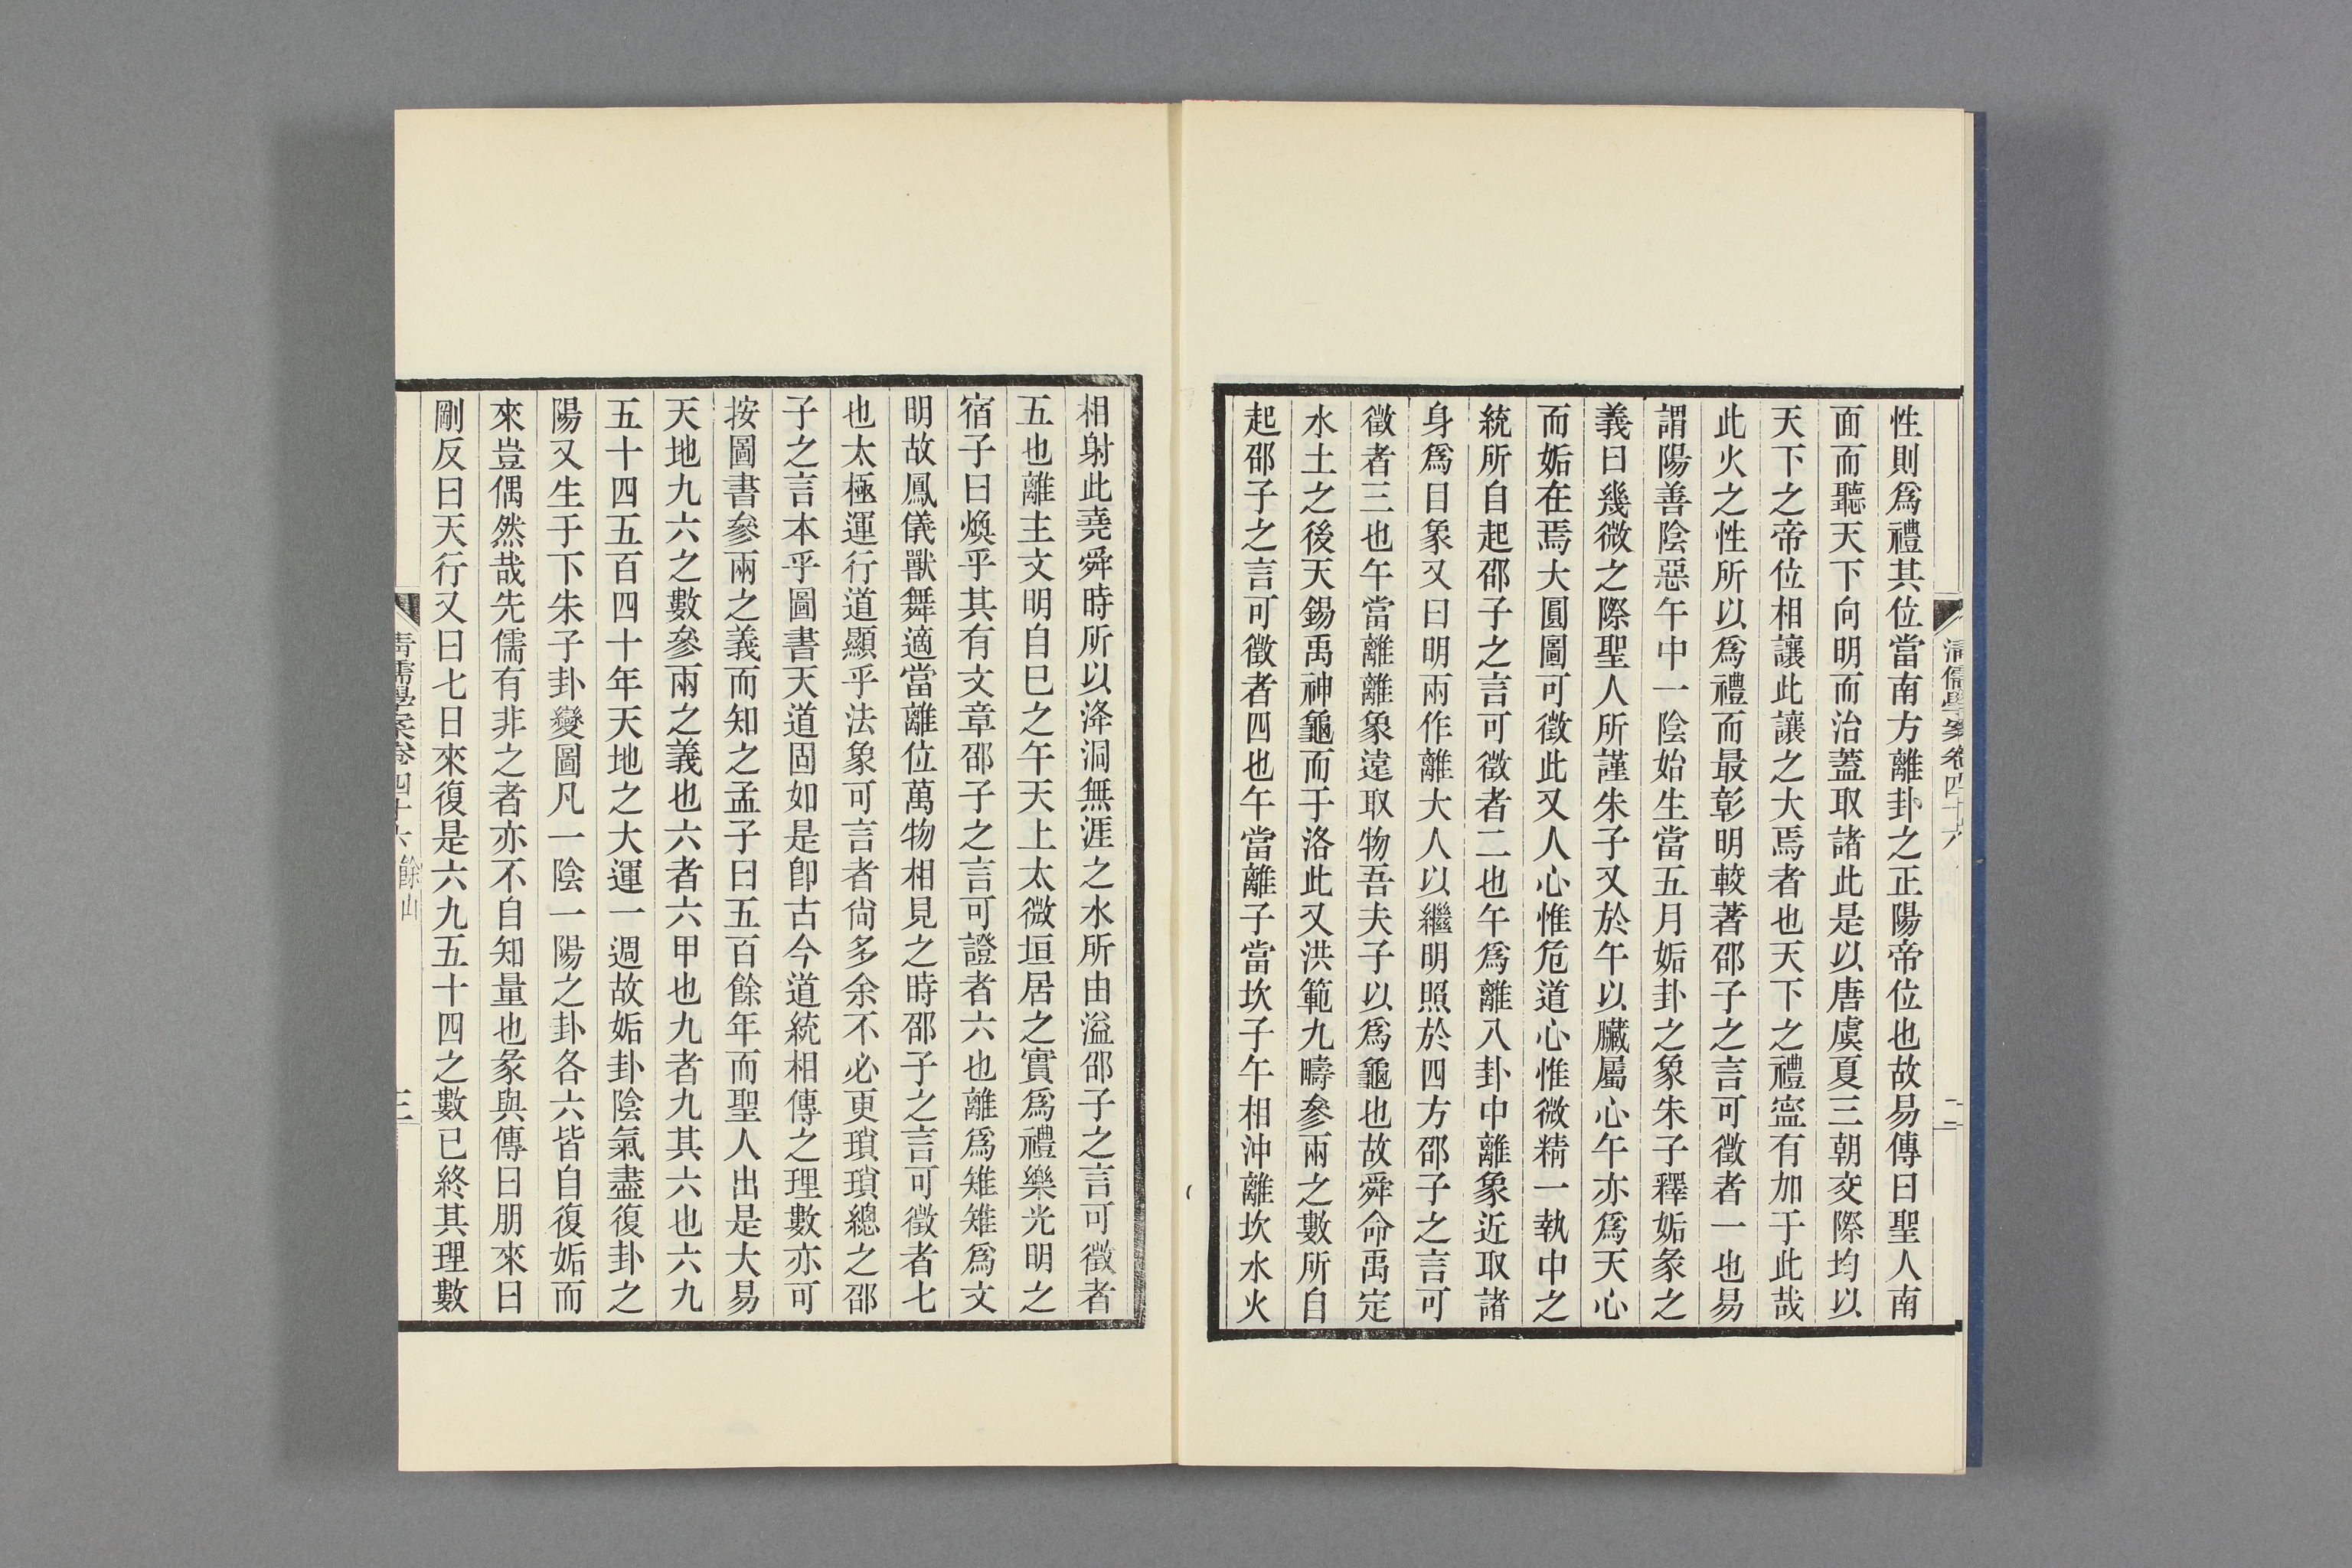 清儒學案卷四十六
二
性則爲禮其位當南方離卦之正陽帝位也故易傳曰聖人南
面而聽天下向明而治蓋取諸此是以唐虞夏三朝交際均以
天下之帝位相讓此讓之大焉者也天下之禮寍有加于此哉
此火之性所以爲禮而最彰明較著邵子之言可徵者一也易
謂陽善陰惡午中一陰始生當五月姤卦之象朱子釋姤彖之
義曰幾微之際聖人所謹朱子又於午以臟屬心午亦爲天心
而姤在焉大圓圖可徵此又人心惟危道心惟微精一執中之
統所自起邵子之言可徵者二也午爲離八卦中離象近取諸
身爲目象又曰明兩作離大人以繼明照於四方邵子之言可
徵者三也午當離離象遠取物吾夫子以爲龜也故舜命禹定
水土之後天錫禹神龜而于洛此又洪範九疇參兩之數所自
起邵子之言可徵者四也午當離子當坎子午相沖離坎水火
相射此堯舜時所以洚洞無涯之水所由溢邵子之言可徵者
五也離主文明自巳之午天上太微垣居之實爲禮樂光明之
宿子曰煥乎其有文章邵子之言可證者六也離爲雉雉爲文
明故鳳儀獸舞適當離位萬物相見之時邵子之言可徵者七
也太極運行道顯乎法象可言者尙多余不必更瑣瑣總之邵
子之言本乎圖書天道固如是卽古今道統相傳之理數亦可
按圖書參兩之義而知之孟子曰五百餘年而聖人出是大易
天地九六之數參兩之義也六者六甲也九者九其六也六九
五十四五百四十年天地之大運一週故姤卦陰氣盡復卦之
陽又生于下朱子卦變圖凡一陰一陽之卦各六皆自復姤而
來豈偶然哉先儒有非之者亦不自知量也彖與傳曰朋來曰
剛反曰天行又曰七日來復是六九五十四之數已終其理數
清儒學案卷四十六 餘山
三